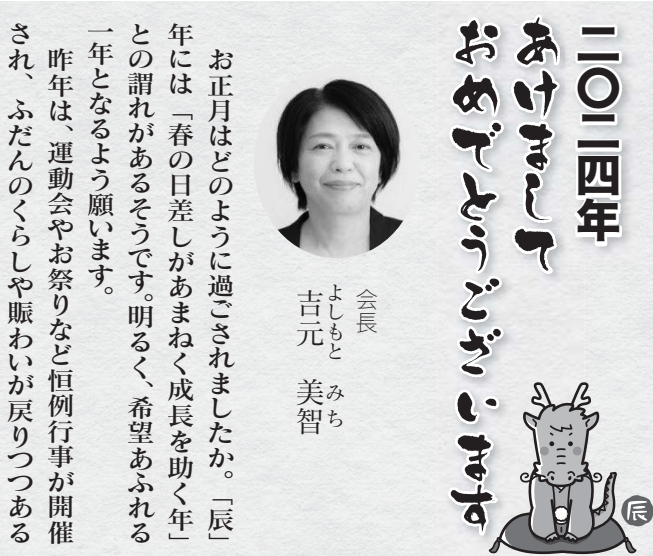 二〇二四年
あけまして
おめでとうございます
会長
よしもと みち
吉元 美智
お正月はどのように過ごされましたか。「辰」
年には「春の日差しがあまねく成長を助く年」
との謂れがあるそうです。明るく、希望あふれる
一年となるよう願います。
昨年は、運動会やお祭りなど恒例行事が開催
され、ふだんのくらしや賑わいが戻りつつある
辰